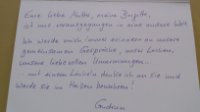 Eure liebe Mutter, meine Brigitte,
ist uns vorausgegangen in eine andere Welt.
Ich werde mich immer erinnern an unsere
gemeinsamen Gespräche, unser Lachen,
unsere liebevollen Umarmungen...
mit einem Lächeln denke ich an Sie und
werde sie im Herzen bewahren!
Gudrun